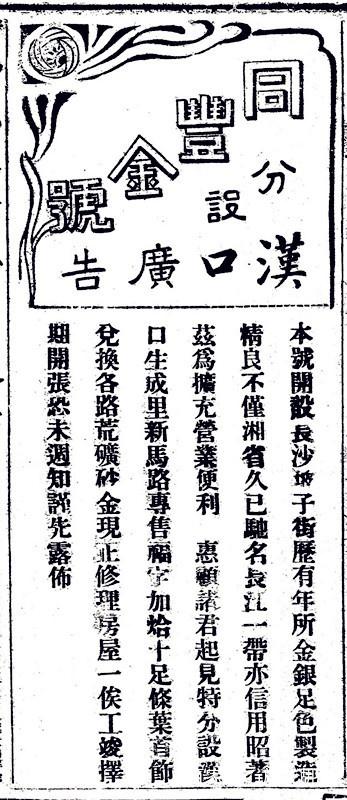 同豐金號
分設
漢口廣告
本號開設長沙坡子街歷有年所金銀足色製造
精良不僅湘省久已馳名長江一帶亦信用昭著
茲爲擴充營業便利　惠顧諸君起見特分設漢
口生成里新馬路專售福字加烚十足條葉首飾
兌換各路荒礦砂金現正修理房屋一俟工竣擇
期開張恐未週知謹先露佈